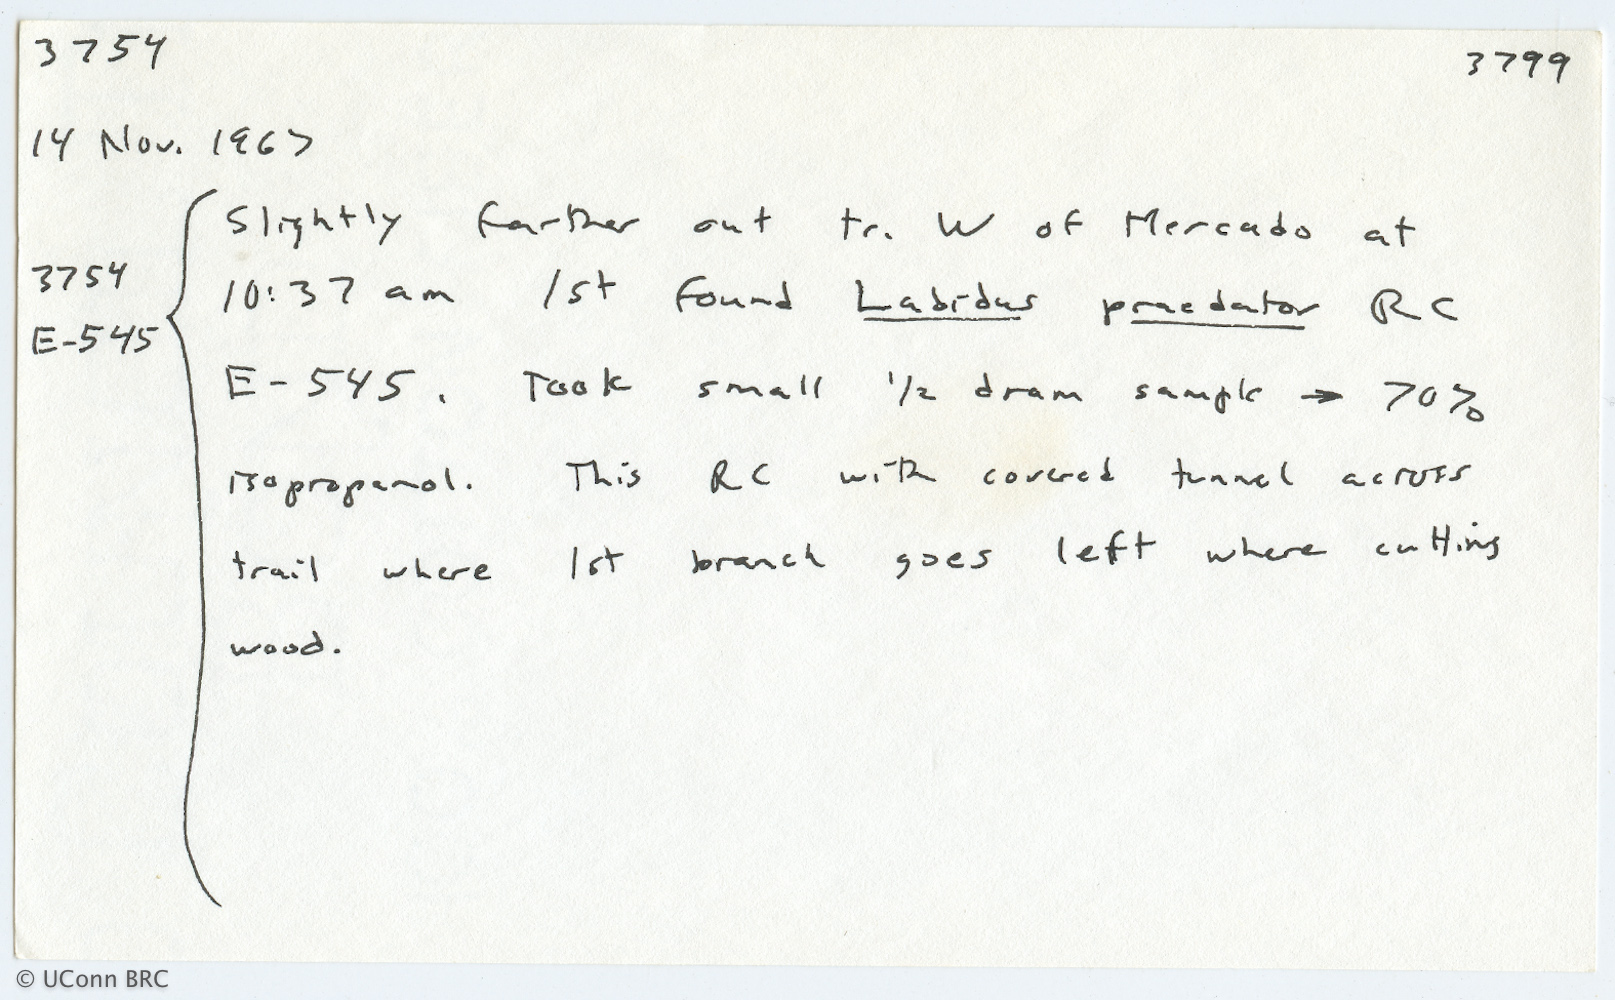 3754
3799
14 Nov. 1967
3754
E-545
Slightly farther out tr. W of Mercado at
10:37 am 1st found Labidus praedator RC
E-545. Took small 1/2 dram sample → 70%
isopropanol. This RC with covered tunnel across
trail where 1st branch goes left where cutting
wood.
© UConn BRC